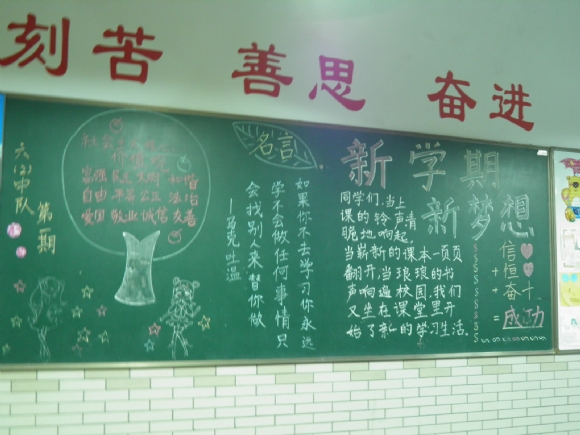 刻苦 善思 奋进
六(2)中队
第一期
社会主义
价值观
富强 民主 文明 和谐
自由 平等 公正 法治
爱国 敬业 诚信 友善
名言
如果你不去学习你永远
学不会做任何事情只
会找别人来替你做
—马克吐温
新学期
新梦想
同学们,当上
课的铃声清
脆地响起,
当崭新的课本一页页
翻开,当琅琅的书
声响遍校园,我们
又坐在课堂里开
始了新的学习生活。
信
+恒
+奋
=成功